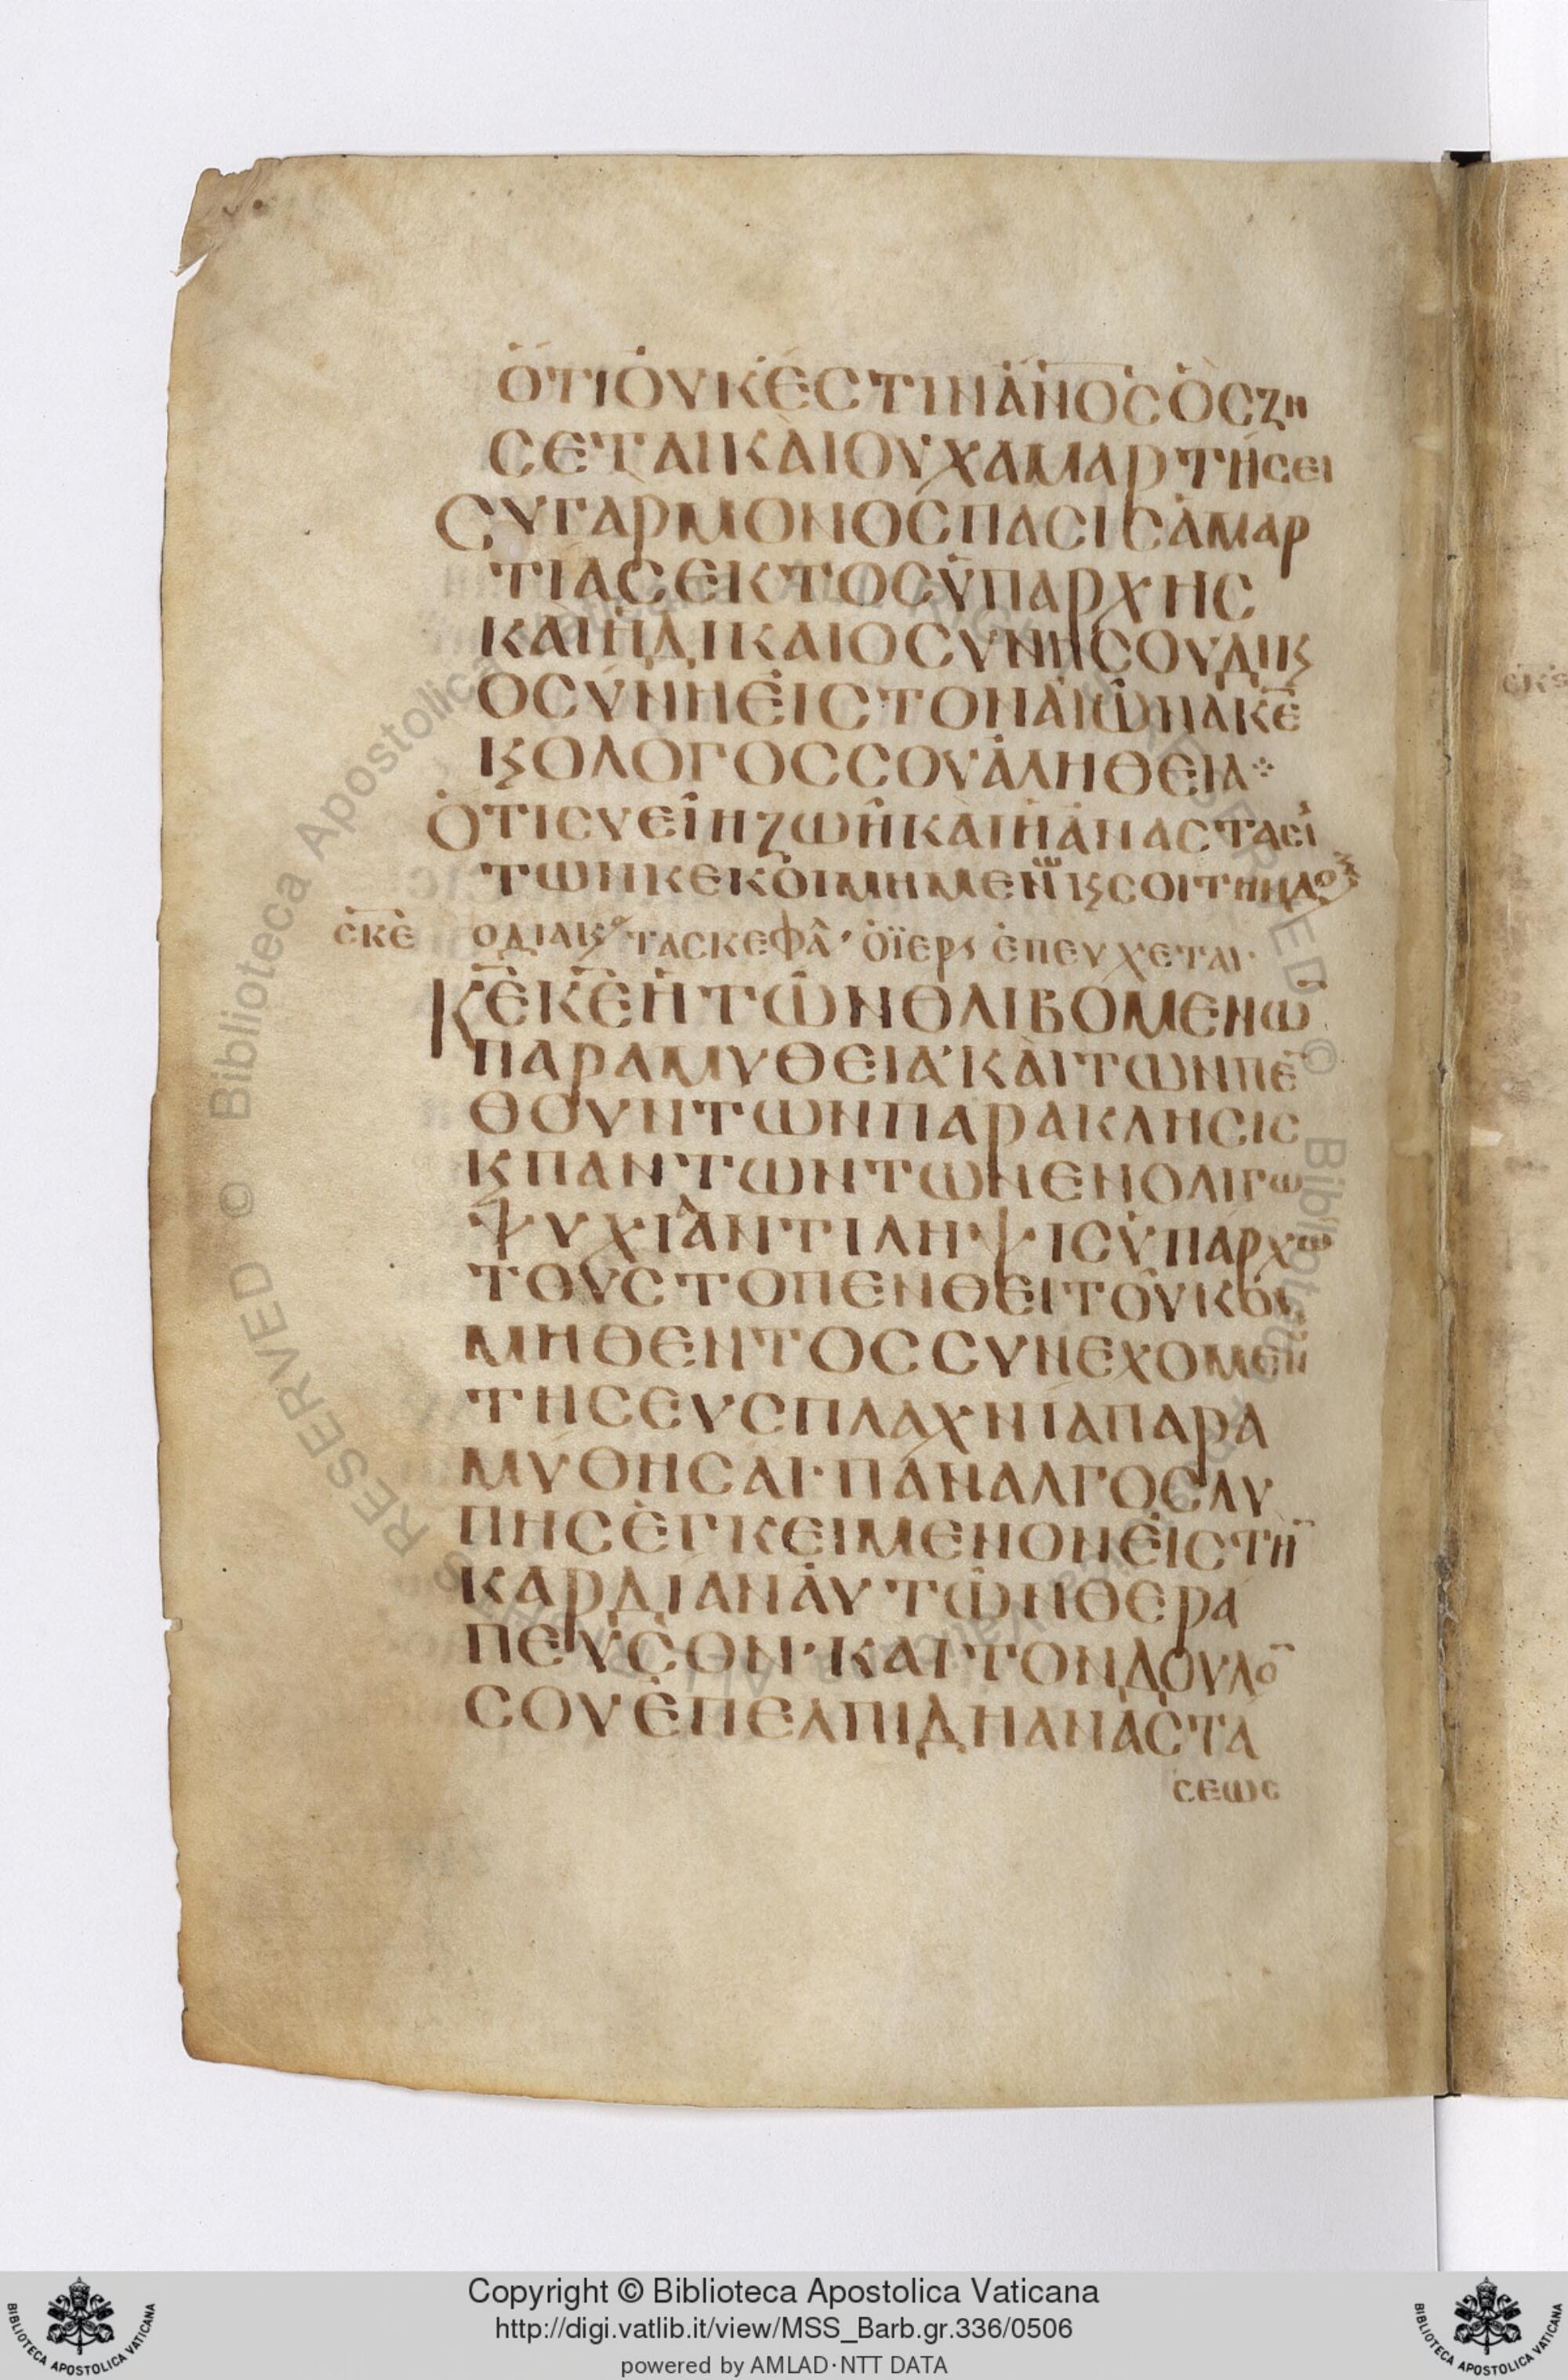 ὍΤΙΟΥΚΕCΤΙΝΑ̅Ν̅Ο̅C̅ὋCΖΗ
CΕΤΑΙΚΑΙΟΥΧΑΜΑΡΤΗCΕΙ
CΥΓΑΡΜΟΝΟCΠΑCΙCΑΜΑΡ
ΤΙΑCΕΚΤΟCΥΠΑΡΧΗC
ΚΑΙΗΔΙΚΑΙΟCΥΝΗCΟΥΔΙΚϗ
ΟCΥΝΗΕΙCΤΟΝΑΙΩΝΑΚ̅Ε̅
ϗΟΛΟΓΟCCΟΥΑΛΗΘΕΙΑ⁘
ὍΤΙCΥΕΙΗΖΩΗΚΑΙΗΑΝΑCΤΑCΙ
ΤΩΝΚΕΚΟΙΜΗΜΕΝΩϗCΟΙΤΗΝΔΟΞ
ΕΚΕ ΟΔΙΑΚϗΟ ΤΑCΚΕΦΑ ̓ ὉΪΕΡϗ ἘΠΕΥΧΕΤΑΙ·
Κ̅Ε̅Κ̅Ε̅ΗΤΩΝΘΛΙΒΟΜΕΝΩ̅
ΠΑΡΑΜΥΘΕΙΑ·ΚΑΙΤΩΝΠΕ̅
ΘΟΥΝΤΩΝΠΑΡΑΚΛΗCΙC
ϗΠΑΝΤΩΝΤΩΝΕΝΟΛΙΓΩ
ΨΥΧΙΑΑΝΤΙΛΗΨΙCΥΠΑΡΧΩ̅
ΤΟΥCΤΟΠΕΝΘΕΙΤΟΥΚΟΙ
ΜΗΘΕΝΤΟCCΥΝΕΧΟΜΕΝ
ΤΗCΕΥCΠΛΑΧΝΙΑΠΑΡΑ
ΜΥΘΗCΑΙ·ΠΑΝΑΛΓΟCΛΥ
ΠΗCΕΓΚΕΙΜΕΝΟΝΕΙCΤΗ̅
ΚΑΡΔΙΑΝΑΥΤΩΝΘΕΡΑ
ΠΕΥCΟΝ·ΚΑΙΤΟΝΔΟΥΛΟ̅
CΟΥΕΠΕΛΠΙΔΗΑΝΑCΤΑ
CΕΩC
Copyright © Biblioteca Apostolica Vaticana
http://digi.vatlib.it/view/MSS_Barb.gr.336/0506
powered by AMLAD·NTT DATA